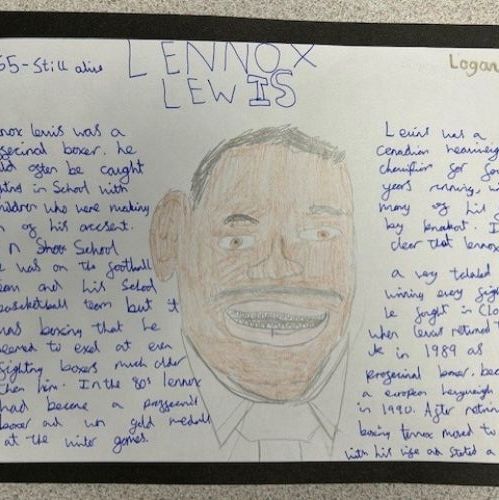 65-Still alive
LENNOX
LEWIS
Logan
nnox lewis was a
he
often be caught
in School with
children who were making
of his accsent.
School
was on the football
and his School
basketball team but it
was boxing that he
seemed to exel at even
fighting boxers much older
then him. In the 80s lennox
had become a
boxer and won gold medalls
at the games.
Lewis was a
Canadian heavywei
champion for fou
years running,
many of his
by knockout. I
clear that lennox
a very
winning every figh
he fought in
when lewis returned
UK in 1989 as
boxer, bec
a european heavyweigh
in 1990. After retire
boxing lennox moved to
with his wife and started a